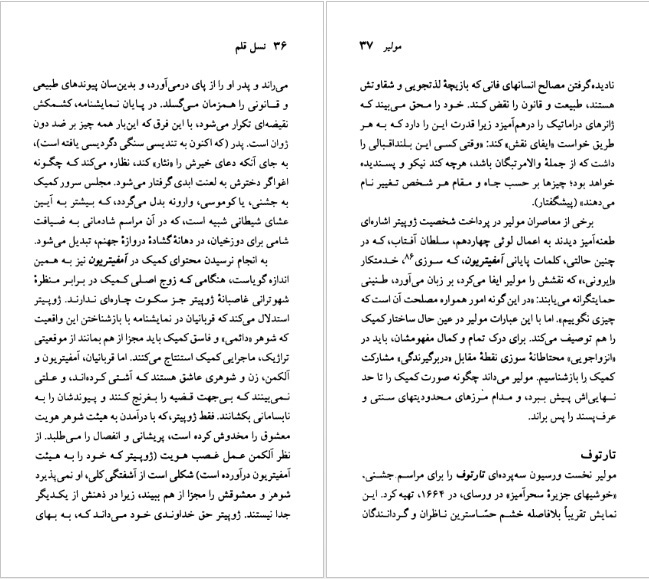 ۳۶ نسل قلم
می‌راند و پدر او را از پای درمی‌آورد، و بدین‌سان پیوندهای طبیعی
و قانونی را همزمان می‌گسلد. در پایان نمایشنامه، کشمکش
نقیضه‌ای تکرار می‌شود، با این فرق که این‌بار همه چیز بر ضد دون
ژوان است. پدر (که اکنون به تندیسی سنگی دگردیسی یافته است)،
به جای آنکه دعای خیرش را «نثار» کند، نظاره می‌کند که چگونه
اغواگر دخترش به لعنت ابدی گرفتار می‌شود. مجلس سرور کمیک
به جشنی، یا کوموسی، وارونه بدل می‌گردد، که بیشتر به آیین
عشای شیطانی شبیه است، که در آن مراسم شادمانی به ضیافت
شامی برای دوزخیان، در دهانهٔ گشادهٔ دروازهٔ جهنم، تبدیل می‌شود.
به انجام نرسیدن محتوای کمیک در آمفیتریون نیز به همین
اندازه گویاست، هنگامی که زوج اصلی کمیک در برابر منظرهٔ
شهوترانی غاصبانهٔ ژوپیتر جز سکوت چاره‌ای ندارند. ژوپیتر
استدلال می‌کند که قربانیان در نمایشنامه با بازشناختن این واقعیت
که شوهر «دائمی» و فاسق کمیک باید مجزا از هم بمانند از موقعیتی
تراژیک، ماجرایی کمیک استنتاج می‌کنند. اما قربانیان، آمفیتریون و
آلکمن، زن و شوهری عاشق هستند که آشتی کرده‌اند، و علتی
نمی‌بینند که بی‌جهت قضیه را بغرنج کنند و پیوندشان را به
نابسامانی بکشانند. فقط ژوپیتر، که با درآمدن به هیئت شوهر هویت
معشوق را مخدوش کرده است، پریشانی و انفصال را می‌طلبد. از
نظر آلکمن عمل غصب هویت (ژوپیتر که خود را به هیئت
آمفیتریون درآورده است) شکلی است از آشفتگی کلی، او نمی‌پذیرد
شوهر و معشوقش را مجزا از هم ببیند، زیرا در ذهنش از یکدیگر
جدا نیستند. ژوپیتر حق خداوندی خود می‌داند که، به بهای
مولیر ۳۷
نادیده گرفتن مصالح انسانهای فانی که بازیچهٔ لذتجویی و شقاوتش
هستند، طبیعت و قانون را نقض کند. خود را محق می‌بیند که
ژانرهای دراماتیک را درهم‌آمیزد زیرا قدرت این را دارد که به هر
طریق خواست «ایفای نقش» کند: «وقتی کسی این بلنداقبالی را
داشت که از جملهٔ والامرتبگان باشد، هرچه کند نیکو و پسندیده
خواهد بود؛ چیزها بر حسب جاه و مقام هر شخص تغییر نام
می‌دهند» (پیشگفتار).
برخی از معاصران مولیر در پرداخت شخصیت ژوپیتر اشاره‌ای
طعنه‌آمیز دیدند به اعمال لوئی چهاردهم، سلطان آفتاب، که در
چنین حالتی، کلمات پایانی آمفیتریون، که سوزی۸۶، خدمتکار
«ایرونی»، که نقشش را مولیر ایفا می‌کرد، بر زبان می‌آورد، طنینی
حمایتگرانه می‌یابند: «در این گونه امور همواره مصلحت آن است که
چیزی نگوییم». اما با این عبارات مولیر در عین حال ساختار کمیک
را هم توصیف می‌کند. برای درک تمام و کمال مفهومشان، باید در
«انزواجویی» محتاطانهٔ سوزی نقطهٔ مقابل «دربرگیرندگی» مشارکت
کمیک را بازشناسیم. مولیر می‌داند چگونه صورت کمیک را تا حد
نهایی‌اش پیش ببرد، و مدام مرزهای محدودیتهای سنتی و
عرف‌پسند را پس براند.
تارتوف
مولیر نخست ورسیون سه‌پرده‌ای تارتوف را برای مراسم جشنی،
«خوشیهای جزیرهٔ سحرآمیز» در ورسای، در ۱۶۶۴، تهیه کرد. این
نمایش تقریباً بلافاصله خشم حسّاسترین ناظران و گردانندگان